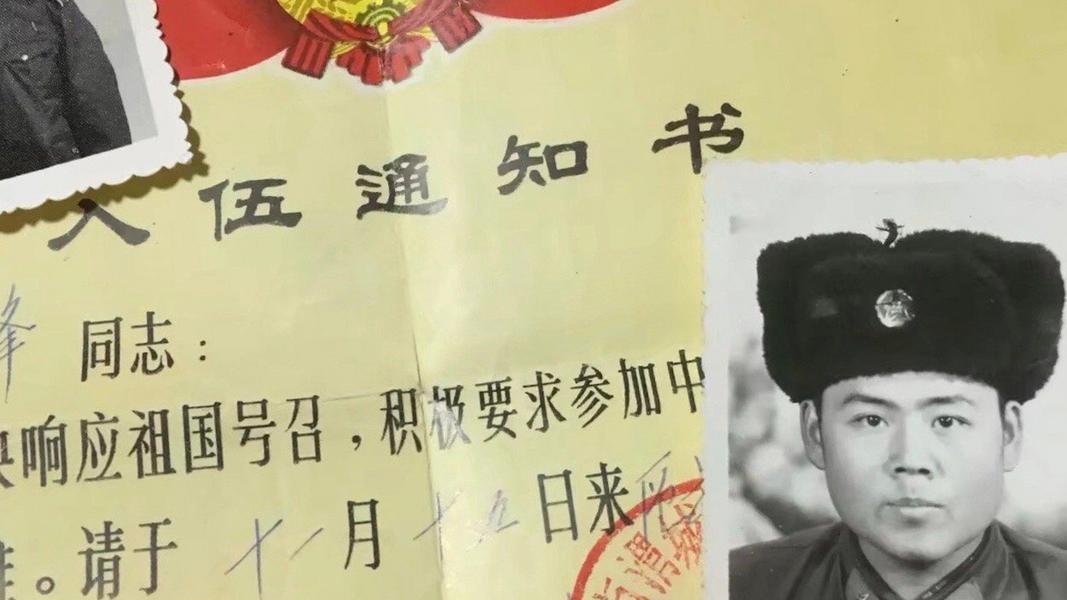 入伍通知书
峰 同志：
响应祖国号召，积极要求参加中
。请于 十一 月 十五 日来